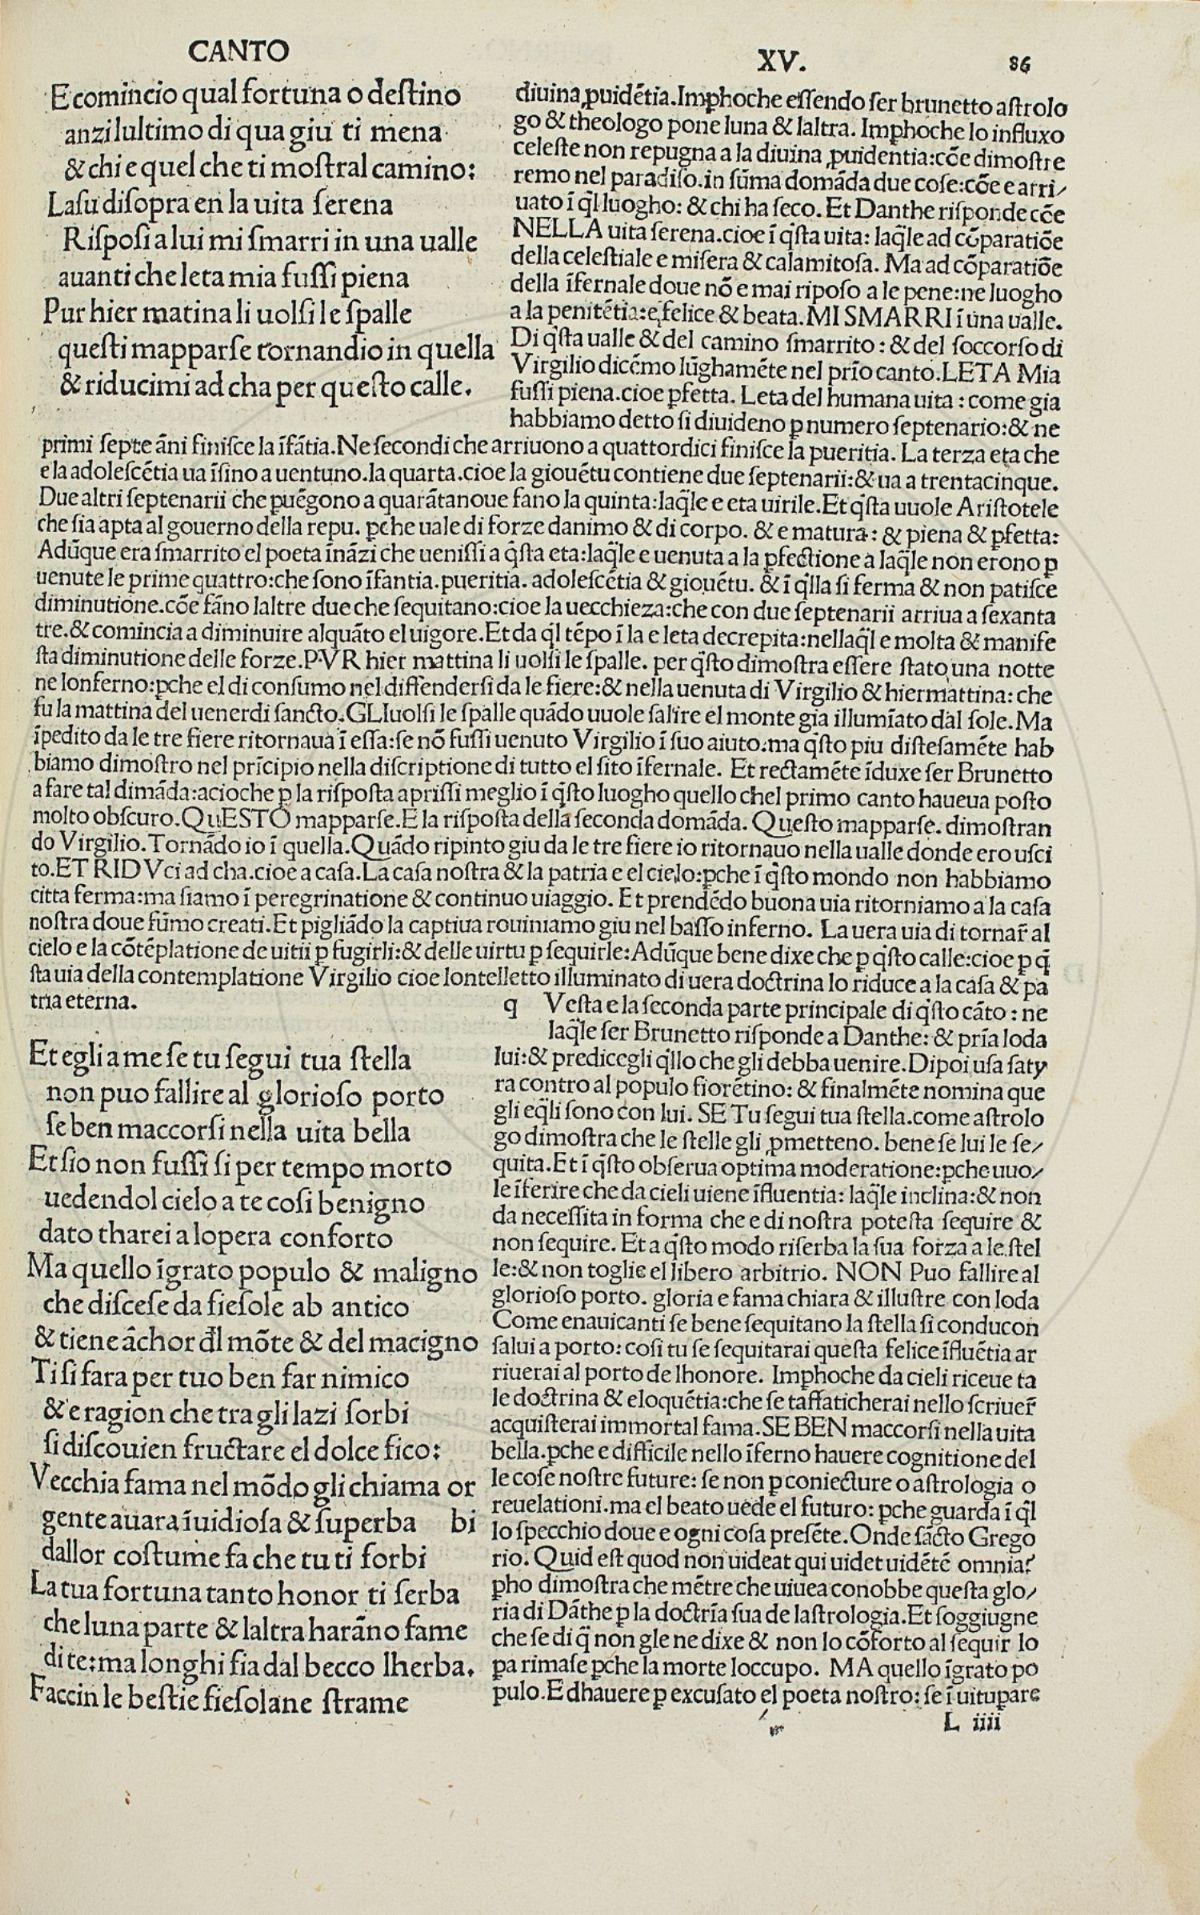 CANTO XV. 86
E comincio qual fortuna o deſtino
anzi lultimo di qua giu ti mena
& chi e quel che ti moſtral camino:
Laſu diſopra en la uita ſerena
Riſpoſi a lui mi ſmarri in una ualle
auanti che leta mia fuſſi piena
Pur hier matina li uolſi le ſpalle
queſti mapparſe tornandio in quella
& riducimi ad cha per queſto calle.
diuina ꝓuidẽtia. Imphoche eſſendo ſer brunetto aſtrolo
go & theologo pone luna & laltra. Imphoche lo influxo
celeſte non repugna a la diuina ꝓuidentia: cõe dimoſtre
remo nel paradiſo. in ſũma domãda due coſe: cõe e arri/
uato ĩ q̃l luogho: & chi ha ſeco. Et Danthe riſponde cõe
NELLA uita ſerena. cioe ĩ q̃ſta uita: laq̃le ad cõparatiõe
della celeſtiale e miſera & calamitoſa. Ma ad cõparatiõe
della ĩfernale doue nõ e mai ripoſo a le pene: ne luogho
a la penitẽtia: e felice & beata. MI SMARRI ĩ una ualle.
Di q̃ſta ualle & del camino ſmarrito: & del ſoccorſo di
Virgilio dicẽmo lũghamẽte nel prĩo canto. LETA Mia
fuſſi piena. cioe ꝑfetta. Leta del humana uita: come gia
habbiamo detto ſi diuideno ꝑ numero ſeptenario: & ne
primi ſepte ãni finiſce la ĩfãtia. Ne ſecondi che arriuono a quattordici finiſce la pueritia. La terza eta che
e la adoleſcẽtia ua ĩſino a uentuno. la quarta. cioe la giouẽtu contiene due ſeptenarii: & ua a trentacinque.
Due altri ſeptenarii che puẽgono a quarãtanoue fano la quinta: laq̃le e eta uirile. Et q̃ſta uuole Ariſtotele
che ſia apta al gouerno della repu. ꝑche uale di forze danimo & di corpo. & e matura: & piena & ꝑfetta:
Adũque era ſmarrito el poeta ĩnãzi che ueniſſi a q̃ſta eta: laq̃le e uenuta a la ꝑfectione a laq̃le non erono ꝑ
uenute le prime quattro: che ſono ĩfantia. pueritia. adoleſcẽtia & giouẽtu. & ĩ q̃lla ſi ferma & non patiſce
diminutione. cõe fãno laltre due che ſequitano: cioe la uecchieza: che con due ſeptenarii arriua a ſexanta
tre. & comincia a diminuire alquãto el uigore. Et da q̃l tẽpo ĩ la e leta decrepita: nellaq̃l e molta & manife
ſta diminutione delle forze. PVR hier mattina li uolſi le ſpalle. per q̃ſto dimoſtra eſſere ſtato una notte
ne lonferno: ꝑche el di conſumo nel diffenderſi da le fiere: & nella uenuta di Virgilio & hiermattina: che
fu la mattina del uenerdi ſancto. GLI uolſi le ſpalle quãdo uuole ſalire el monte gia illumĩato dal ſole. Ma
ĩpedito da le tre fiere ritornaua ĩ eſſa: ſe nõ fuſſi uenuto Virgilio ĩ ſuo aiuto. ma q̃ſto piu diſteſamẽte hab
biamo dimoſtro nel prĩcipio nella diſcriptione di tutto el ſito ĩfernale. Et rectamẽte ĩduxe ſer Brunetto
a fare tal dimãda: acioche ꝑ la riſpoſta apriſſi meglio ĩ q̃ſto luogho quello chel primo canto haueua poſto
molto obſcuro. QuESTO mapparſe. E la riſpoſta della ſeconda domãda. Queſto mapparſe. dimoſtran
do Virgilio. Tornãdo io ĩ quella. Quãdo ripinto giu da le tre fiere io ritornauo nella ualle donde ero uſci
to. ET RIDVci ad cha. cioe a caſa. La caſa noſtra & la patria e el cielo: ꝑche ĩ q̃ſto mondo non habbiamo
citta ferma: ma ſiamo ĩ peregrinatione & continuo uiaggio. Et prendẽdo buona uia ritorniamo a la caſa
noſtra doue fũmo creati. Et pigliãdo la captiua rouiniamo giu nel baſſo inferno. La uera uia di tornar̃ al
cielo e la cõtẽplatione de uitii ꝑ fugirli: & delle uirtu ꝑ ſequirle: Adũque bene dixe che ꝑ q̃ſto calle: cioe ꝑ q̃
ſta uia della contemplatione Virgilio cioe lontelletto illuminato di uera doctrina lo riduce a la caſa & pa
tria eterna.
Et egli a me ſe tu ſegui tua ſtella
non puo fallire al glorioſo porto
ſe ben maccorſi nella uita bella
Et ſio non fuſſi ſi per tempo morto
uedendol cielo a te coſi benigno
dato tharei a lopera conforto
Ma quello ĩgrato populo & maligno
che diſceſe da fieſole ab antico
& tiene ãchor dl̃ mõte & del macigno
Ti ſi fara per tuo ben far nimico
& e ragion che tra gli lazi ſorbi
ſi diſcouien fructare el dolce fico:
Vecchia fama nel mõdo gli chiama or
gente auara ĩuidioſa & ſuperba bi
dallor coſtume fa che tu ti forbi
La tua fortuna tanto honor ti ſerba
che luna parte & laltra harãno fame
di te: ma longhi fia dal becco lherba.
Faccin le beſtie fieſolane ſtrame
q Veſta e la ſeconda parte principale di q̃ſto cãto: ne
laq̃le ſer Brunetto riſponde a Danthe: & prĩa loda
lui: & predicegli q̃llo che gli debba uenire. Dipoi uſa ſaty
ra contro al populo fiorẽtino: & finalmẽte nomina que
gli eq̃li ſono con lui. SE Tu ſegui tua ſtella. come aſtrolo
go dimoſtra che le ſtelle gli ꝓmetteno. bene ſe lui le ſe/
quita. Et ĩ q̃ſto obſerua optima moderatione: ꝑche uuo/
le ĩferire che da cieli uiene ĩfluentia: laq̃le inclina: & non
da neceſſita in forma che e di noſtra poteſta ſequire &
non ſequire. Et a q̃ſto modo riſerba la ſua forza a le ſtel
le: & non toglie el libero arbitrio. NON Puo fallire al
glorioſo porto. gloria e fama chiara & illuſtre con loda
Come enauicanti ſe bene ſequitano la ſtella ſi conducon
ſalui a porto: coſi tu ſe ſequitarai queſta felice ĩfluẽtia ar
riuerai al porto de lhonore. Imphoche da cieli riceue ta
le doctrina & eloquẽtia: che ſe taffaticherai nello ſcriuer̃
acquiſterai immortal fama. SE BEN maccorſi nella uita
bella. ꝑche e difficile nello ĩferno hauere cognitione del
le coſe noſtre future: ſe non ꝑ coniecture o aſtrologia o
reuelationi. ma el beato uede el futuro: ꝑche guarda ĩ q̃l
lo ſpecchio doue e ogni coſa preſẽte. Onde ſãcto Grego
rio. Quid eſt quod non uideat qui uidet uidẽtẽ omnia?
pho dimoſtra che mẽtre che uiuea conobbe queſta glo/
ria di Dãthe ꝑ la doctrĩa ſua de laſtrologia. Et ſoggiugne
che ſe di q̃ non gle ne dixe & non lo cõforto al ſequir lo
pa rimaſe ꝑche la morte loccupo. MA quello ĩgrato po
pulo. E dhauere ꝑ excuſato el poeta noſtro: ſe ĩ uitupare
L iiii